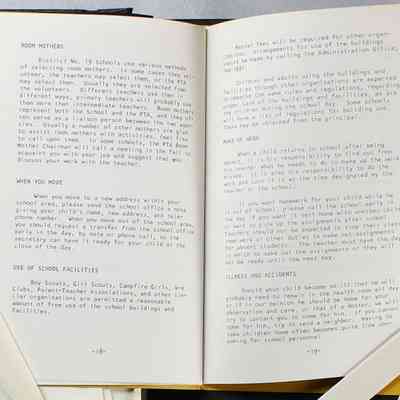 ROOM MOTHERS
District No. 19 Schools use various methods
of selecting room mothers. In some cases they vol-
unteer, the teachers may select them, or the PTA
may select them. Usually they are selected from
the volunteers. Different teachers use them in
different ways, primary teachers will probably use
them more than intermediate teachers. Room mothers
represent both the School and the PTA, and they of-
ten serve as a liaison person between the two
Usually a number of other mothers are glad
to assist room mothers with activities. Feel free
to call upon them. In some schools, the PTA Room
Mother Chairman will call a meeting in the fall to
acquaint you with your job and suggest that you
discuss your work with the teacher.
WHEN YOU MOVE
When you move to a new address within your
school area, please send the school office a note
giving your child's name, new address, and tele-
phone number. When you move out of the school area,
you should request a transfer from the school office
early in the day, by note or phone call, so the
secretary can have it ready for your child at the
close of the day.
USE OF SCHOOL FACILITIES
Boy Scouts, Girl Scouts, Campfire Girls, 4-H
Clubs, Parent-Teacher Associations, and other sim-
ilar organizations are permitted a reasonable
amount of free use of the school buildings and
facilities.
-18-
Rental fees will be required for other organ-
izations. Arrangements for use of the buildings
must be made by calling the Administration Office,
Children and adults using the buildings and
facilities through other organizations are expected
to observe the same rules and regulations, regarding
the use of the buildings and facilities, as are
the children during the school day. Some schools
will have a list of regulations for building use.
These may be obtained from the principal.
MAKE UP WORK
When a child returns to school after being
absent, it is his responsibility to find out from
his teacher what he needs to do to make up the work
missed. It is also his responsibility to do the
work and turn it in by the time designated by the
teacher or the school.
If you want homework for your child while he
is out of school, please call the school early in
the day if you want it sent home with another child
or want to pick up the assignments after school.
Teachers should not be expected to stop their class-
room work or other duties to make out assignments
for absent students. The teacher must have the day
in which to make out the assignments or they will
not be ready until the next day.
ILLNESS AND ACCIDENTS
Should your child become so ill that he will
probably need to remain in the health room all day
or if in our opinion he should be home for your
observation and care, or that of a doctor, we will
try to contact you to come for him. If you cannot
come for him, try to send a neighbor. Having to
take children home often becomes quite time con-
suming for school personnel.
-19-